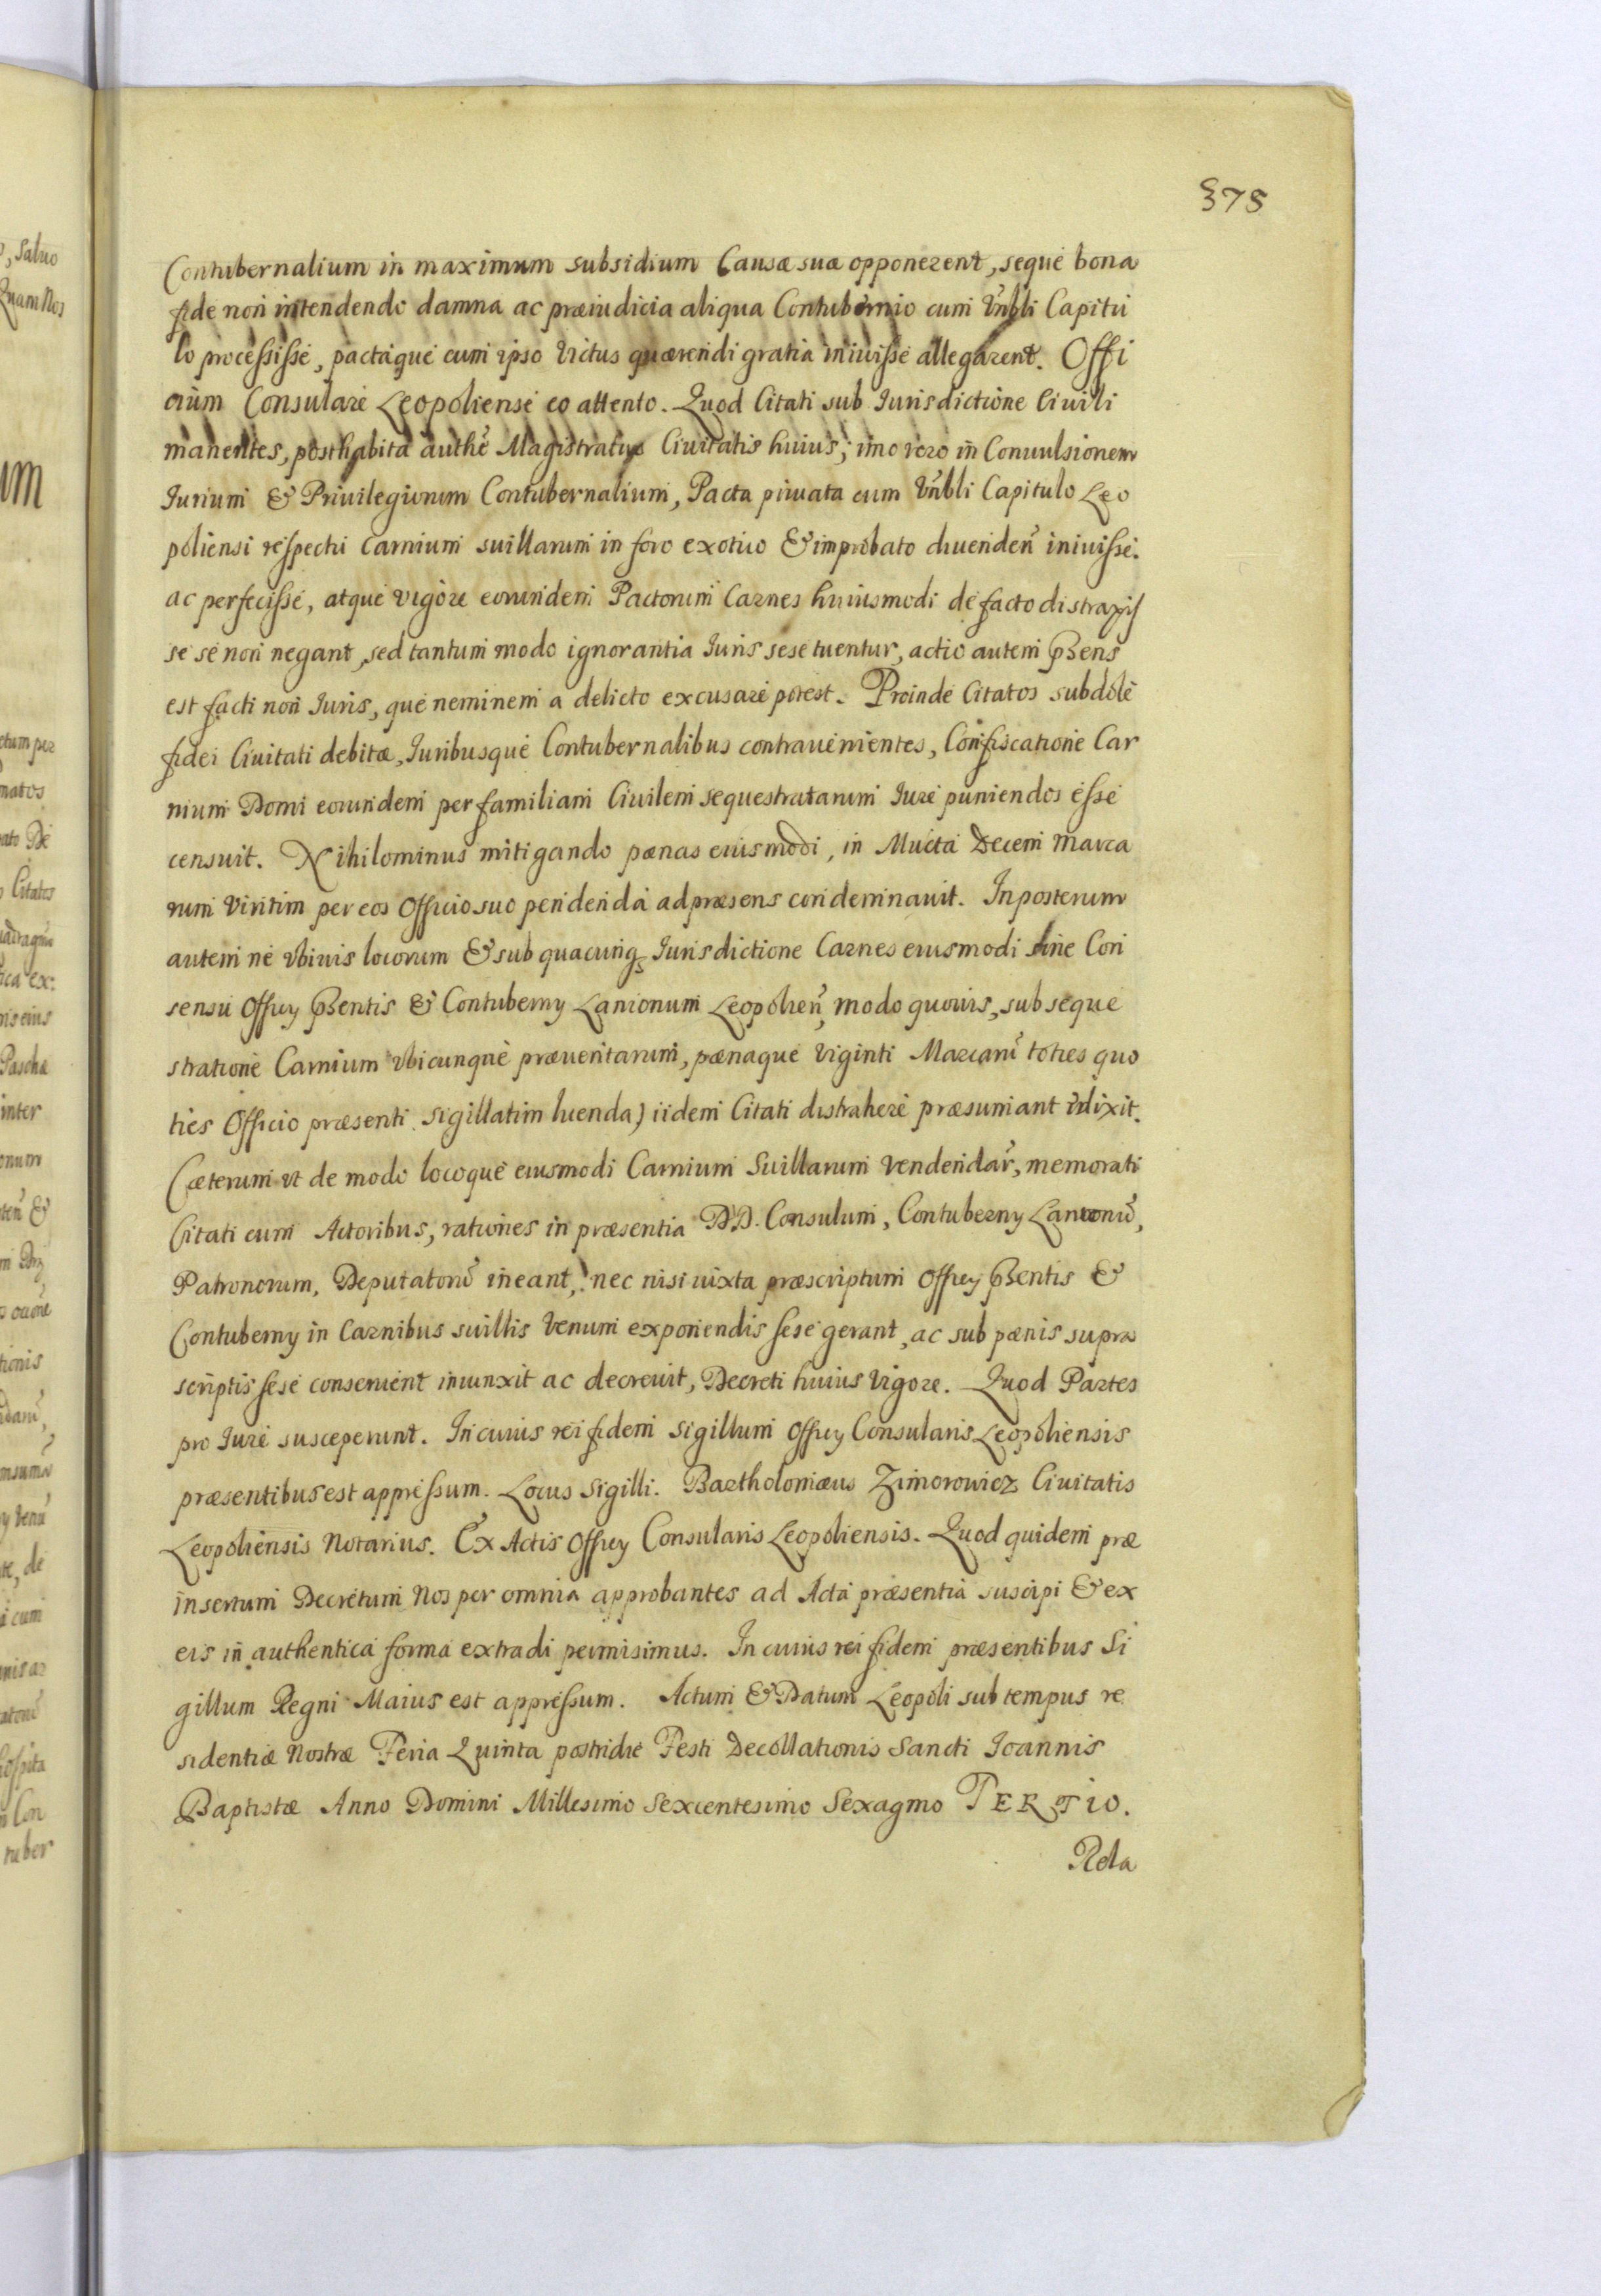 375
Contubernalium in maximum subsidium Causæ suæ opponerent, seque bona
fide non intendendo damna ac præiudicia aliqua Contubernio cum Vnbli Capitu
lo processisse, pactaque cum ipso victus quærendi gratia iniuisse allegarent. Offi
cium Consulare Leopoliense eo attento. Quod Citati sub Iurisdictione Ciuili
manentes, posthabita authe Magistratus Ciuitatis huius, imo vero in Conuulsionem
Iurium & Priuilegiorum Contubernalium, Pacta priuata cum Vnbli Capitulo Leo
poliensi respectu Carnium suillarum in foro exotico & improbato diuenden iniuisse
ac perfecisse, atque vigore eorundem Pactorum Carnes huiusmodi de facto distraxis
se se non negant, sed tantum modo ignorantia Iuris sese tuentur, actio autem pñs
est facti non Iuris, que neminem a delicto excusare potest. Proinde Citatos subdole
fidei Ciuitati debitæ, Iuribusque Contubernalibus contrauenientes, Confiscatione Car
nium Domi eorundem per familiam Ciuilem sequestratarum Iure puniendos esse
censuit. Nihilominus mitigando pænas eiusmodi, in Mucta Decem Marca
rum Viritim per eos Officio suo pendenda ad præsens condemnauit. In posterum
autem ne vbiuis locorum & sub quacunq Iurisdictione Carnes eiusmodi sine Con
sensu Officy Pñentis & Contuberny Lanionum Leopolien, modo quouis, sub seque
stratione Carnium vbicunque præuentarum, pænaque Viginti Marcaru toties quo
ties Officio præsenti sigillatim luenda) iidem Citati distrahere præsumant indixit.
Cæterum vt de modo locoque eiusmodi Carnium Suillarum vendendar, memorati
Citati cum Actoribus, rationes in præsentia DD. Consulum, Contuberny Lanionu,
Patronorum, Deputatoru ineant, nec nisi iuxta præscriptum Officy Pñentis &
Contuberny in Carnibus suillis Venum exponendis sese gerant, ac sub pænis supra
scriptis sese conseruent iniunxit ac decreuit, Decreti huius Vigore. Quod Partes
pro Iure susceperunt. In cuius rei fidem Sigillum Officy Consularis Leopoliensis
præsentibus est appressum. Locus Sigilli. Bartholomæus Zimorowicz Ciuitatis
Leopoliensis Notarius. Ex Actis Officy Consularis Leopoliensis. Quod quidem præ
insertum Decretum Nos per omnia approbantes ad Acta præsentia suscipi & ex
eis in authentica forma extradi permisimus. In cuius rei fidem præsentibus Si
gillum Regni Maius est appressum. Actum & Datum Leopoli sub tempus re
sidentiæ Nostræ Feria Quinta postridie Festi Decollationis Sancti Ioannis
Baptistæ Anno Domini Millesimo Sexcentesimo Sexagmo TERTIO.
Rela